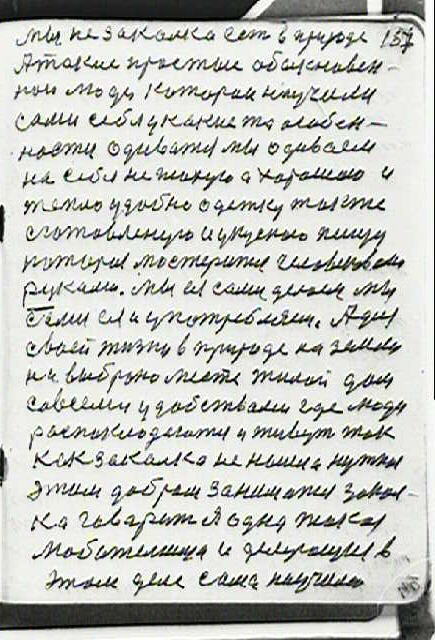 мы не закалка есть в природе 137
А такие простые обыкновен-
ные люди которые научили
сами себя какие то особен-
ности одиватся мы одиваем
на себя не такую а хорошою и
тепло удобно одежку также
сготовленую и укусною пищу
которая мастерится человеком
руками. мы ея сами делаем мы
сами ея и употребляем. А для
своей жизни в природе на земле
на выброно месте жилой дом
савсеми удобствами где люди
распологаются и живут так
как закалка не наша нужна
этим добром заниматся закал-
ка гаварит Я одна такая
в
этом деле сама научила